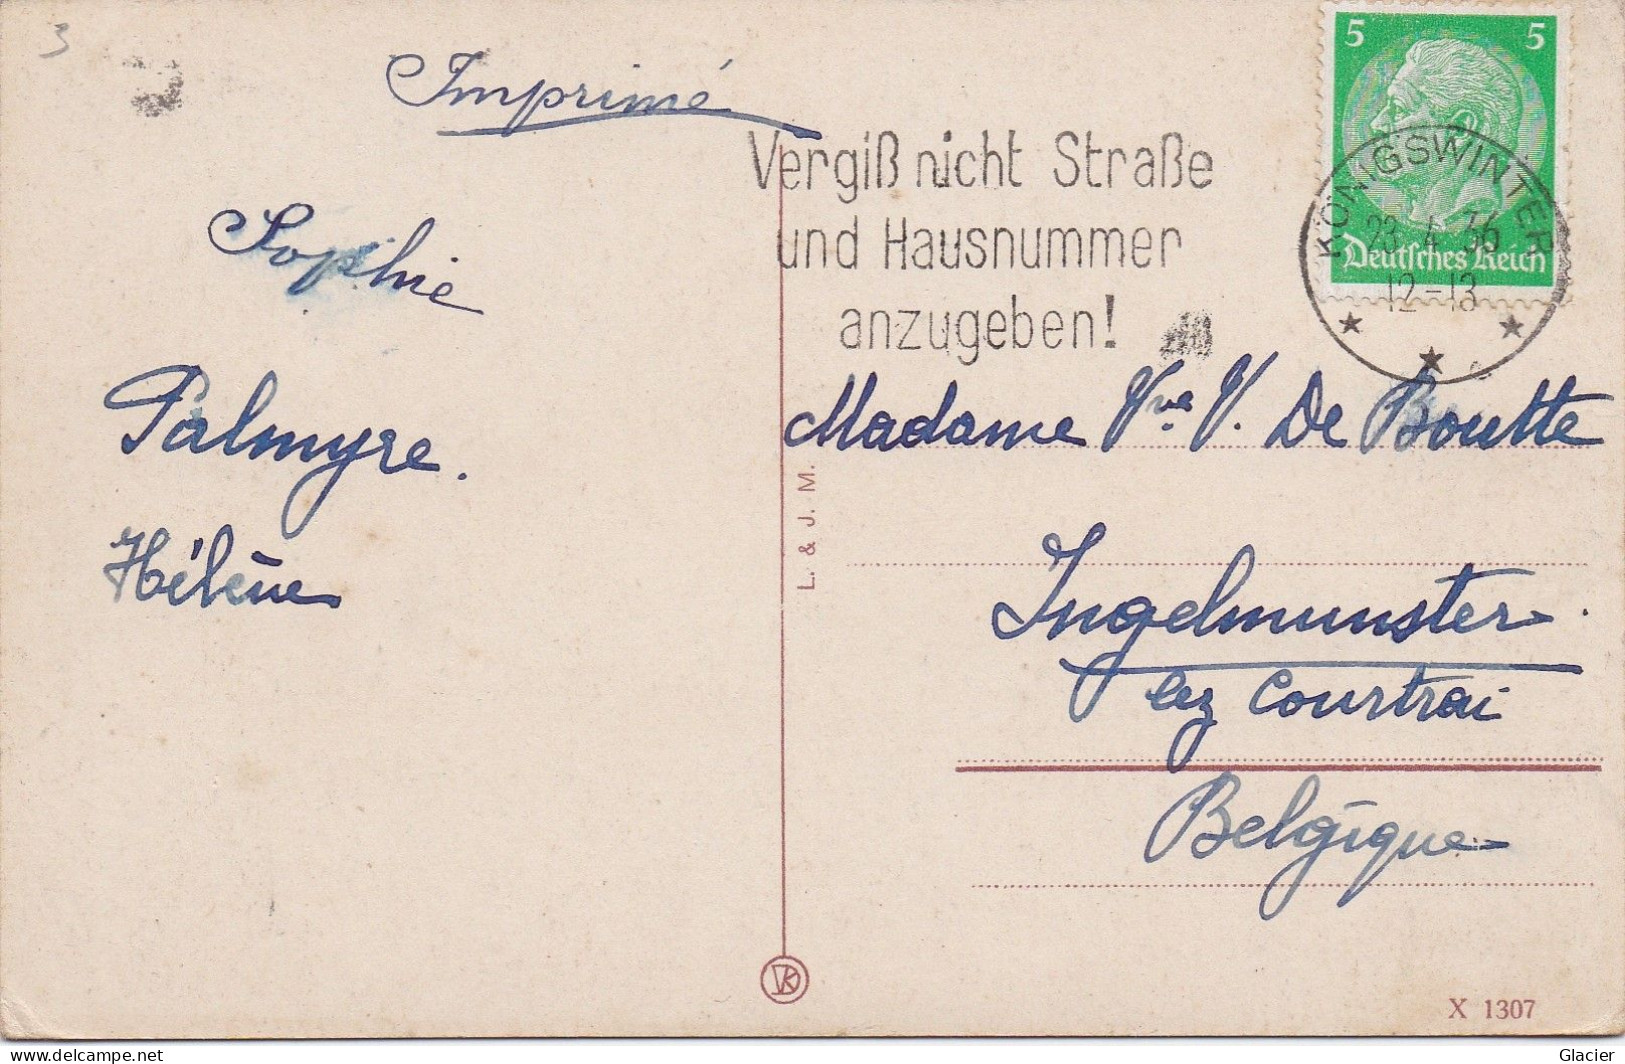 3
Imprimé
5 5
Deutsches Reich
KÖNIGSWINTER
23.4.36
12-13
Vergiß nicht Straße
und Hausnummer
anzugeben!
Sophie
Palmyre.
Hélène
Madame Vve V. De Boutte
Ingelmunster
lez Courtrai
Belgique
L. & J. M.
VK
X 1307
delcampe.net
Glacier